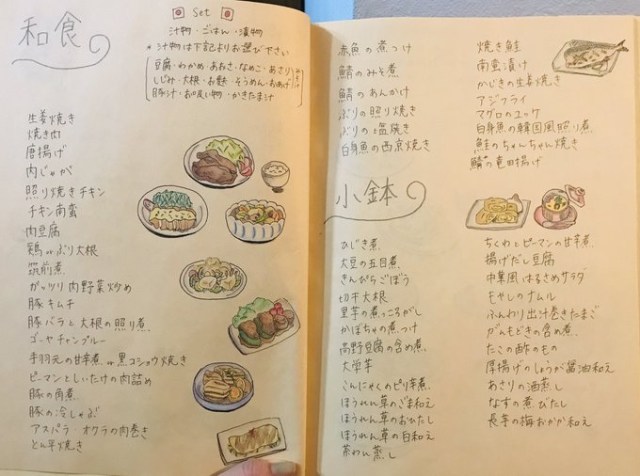 和食
Set
汁物・ごはん・漬物
*汁物は下記よりお選び下さい
豆腐・わかめ・あおさ・なめこ・あさり
しじみ・大根・お麩・そうめん・おあげ
豚汁・お吸い物・かきたま汁
生姜焼き
焼き肉
唐揚げ
肉じゃが
照り焼きチキン
チキン南蛮
肉豆腐
鶏 or ぶり大根
筑前煮
ガッツリ肉野菜炒め
豚キムチ
豚バラと大根の照り煮
ゴーヤチャンプルー
手羽元の甘辛煮 or 黒コショウ焼き
ピーマンとしいたけの肉詰め
豚の角煮
豚の冷しゃぶ
アスパラ・オクラの肉巻き
とん平焼き
赤魚の煮つけ
鯖のみそ煮
鯖のあんかけ
ぶりの照り焼き
ぶりの塩焼き
白身魚の西京焼き
焼き鮭
南蛮漬け
かじきの生姜焼き
アジフライ
マグロのユッケ
白身魚の韓国風照り煮
鮭のちゃんちゃん焼き
鯖の竜田揚げ
小鉢
ひじき煮
大豆の五目煮
きんぴらごぼう
切干大根
里芋の煮っころがし
かぼちゃの煮つけ
高野豆腐の含め煮
大学芋
こんにゃくのピリ辛煮
ほうれん草のごま和え
ほうれん草のおひたし
ほうれん草の白和え
茶わん蒸し
ちくわとピーマンの甘辛煮
揚げだし豆腐
中華風はるさめサラダ
もやしのナムル
ふんわり出汁巻きたまご
がんもどきの含め煮
たこの酢のもの
厚揚げのしょうが醤油和え
あさりの酒蒸し
なすの煮びたし
長芋の梅おかか和え